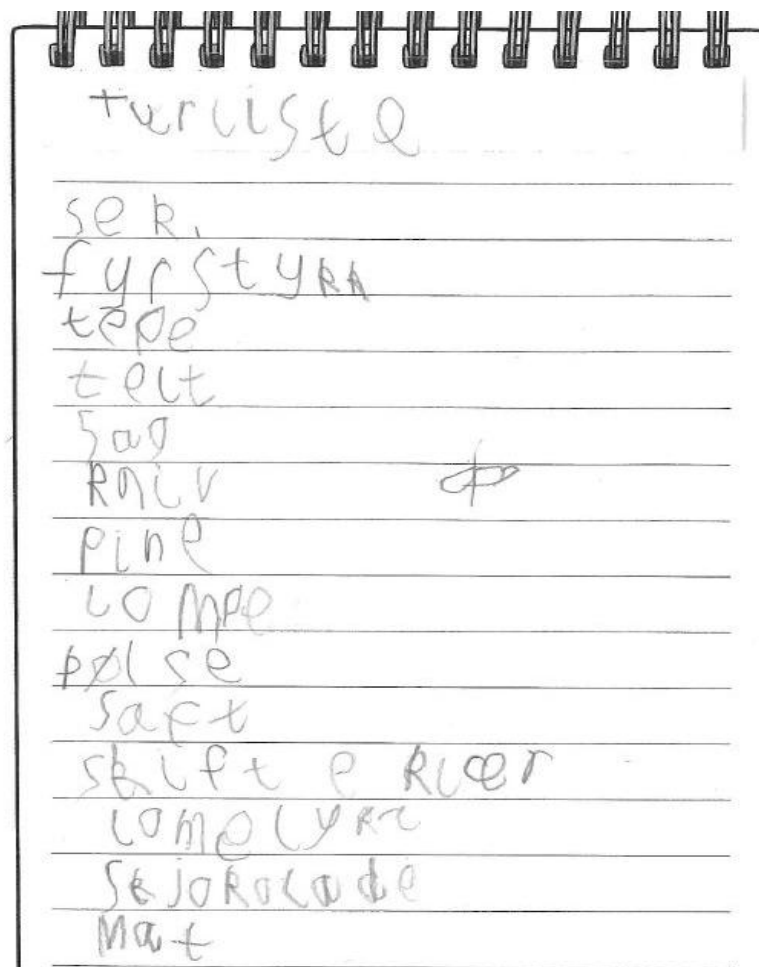 turliste
sek.
fyrstykk
tepe
telt
sag
kniv
pine
lompe
pølse
saft
skifte klær
lomelykt
skjokolade
mat